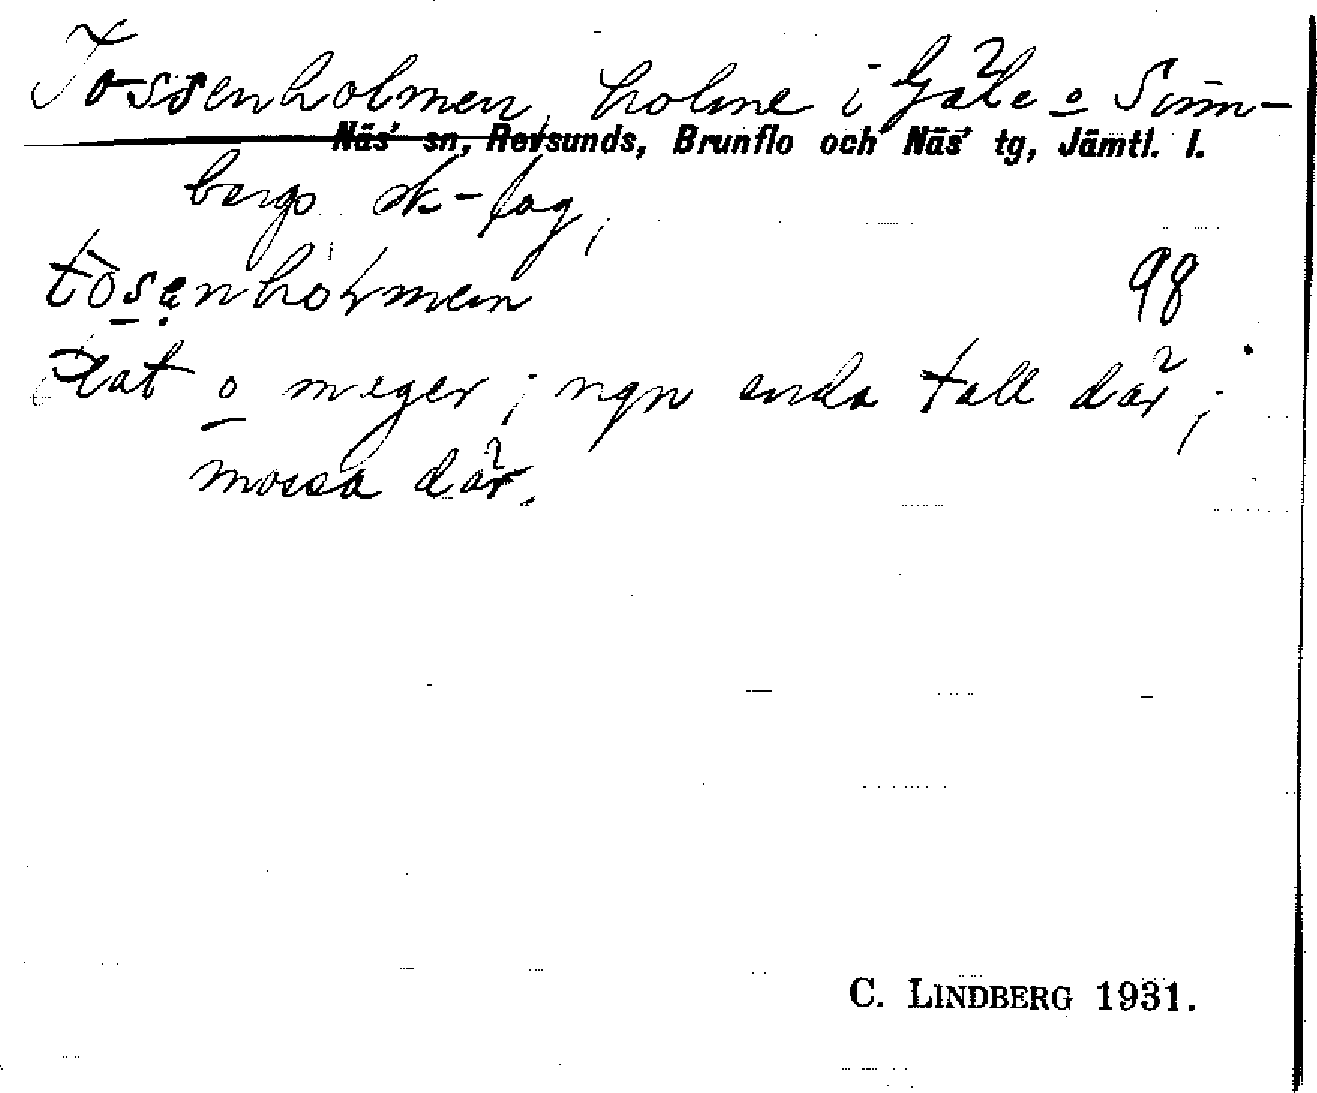 Tossenholmen, holme i Gåle o Sunn-
Näs' sn, Revsunds, Brunflo och Näs' tg, Jämtl. l.
bergs sk-lag;
98
flat o mager; ngn enda tall där;
mossa där.
C. LINDBERG 1931.